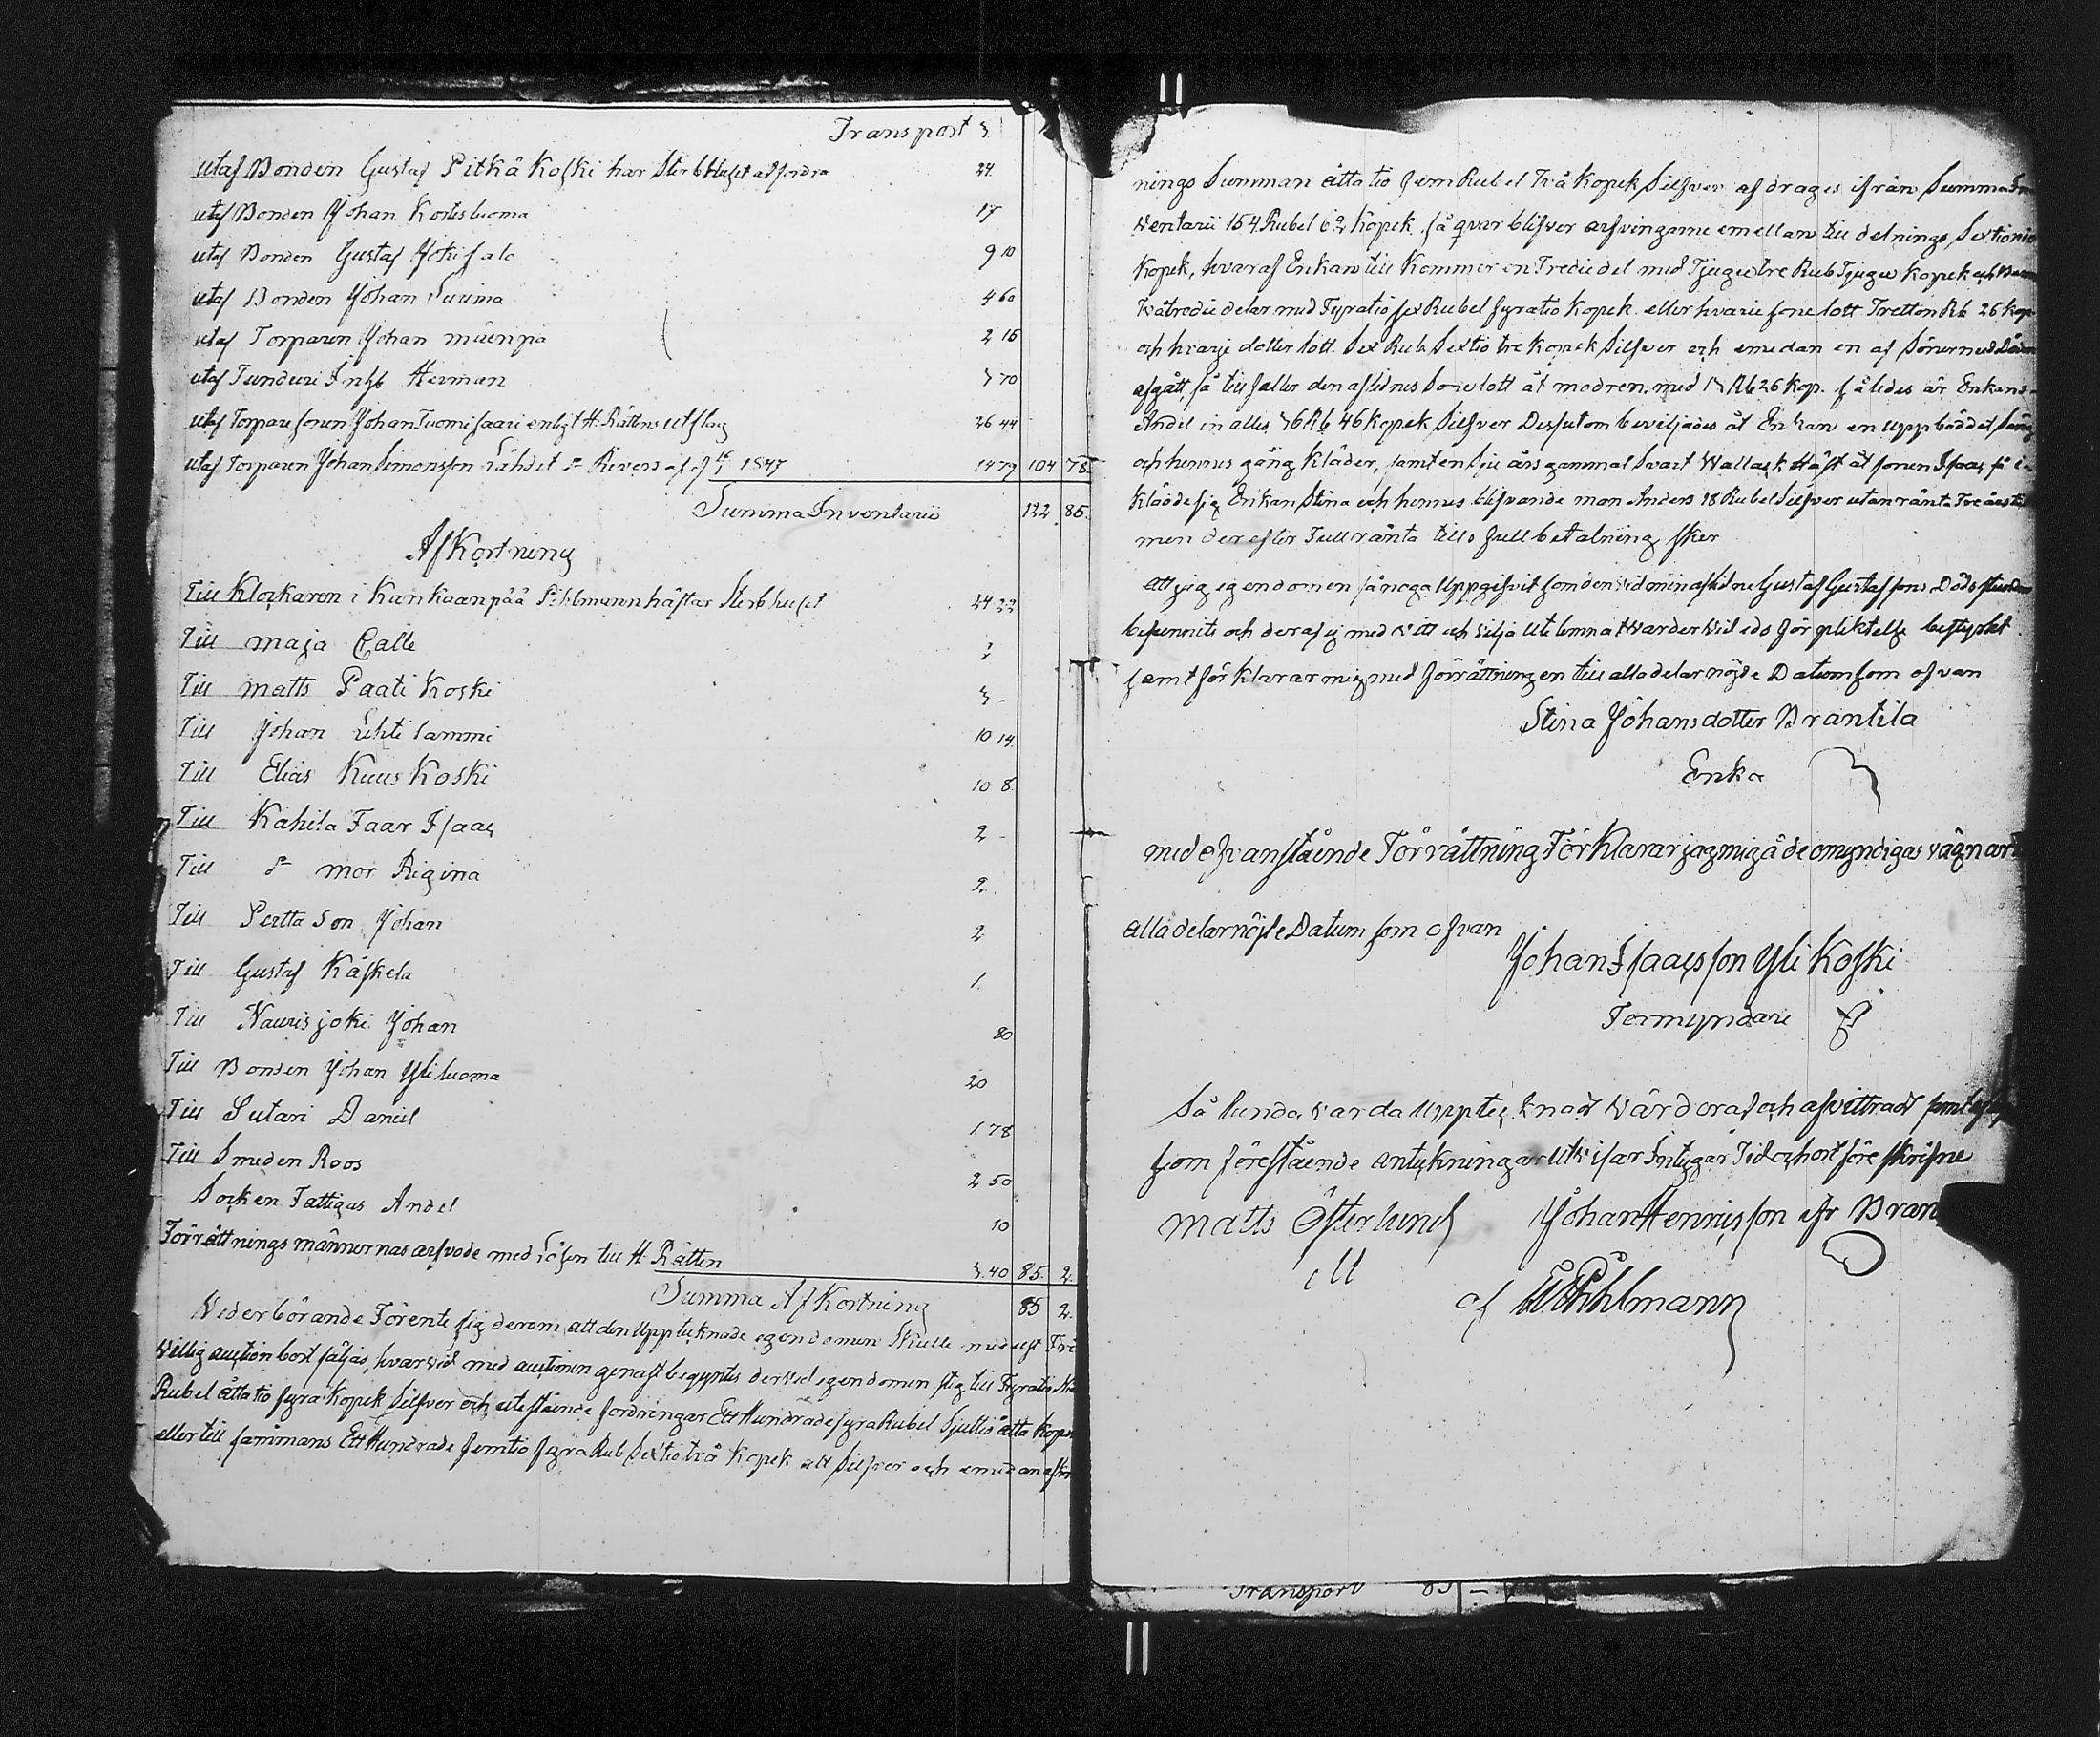 Transport
utaf Bonden Gustaf Pitkäkoski har Sterbhuset at fordra 24
utaf Bonden Johan Kortesluoma 17
utaf Bonden Gustaf 9 10
utaf Bonden Johan Suuma 4 60
utaf Torparen Johan mäenpä 2 15
utaf Tunduri Inhs Herman 70
utaf Torparesonen Johan Tuomisaari enligt H. Rättens utslag 26 44
utaf Torparen Johan Simonsson Lähdet Revers af 1847 14 79 104 78
Summa Inventarii 122 85
Afkortning
Till Klockaren i Kankaanpää Pihlmann häftar Sterbhuset 24 22
Till maja Calle
Till matts Paatikoski
Till Johan Lehtilammi 10 14
Till Elias Kuuskoski 10 8
Till Kahila Faar Isaac 2 -
Till d:o mor Rigina 2
Till Perttason Johan 2
Till Gustaf Käskela 1
Till Naurisjoki Johan 80
Till Bonden Johan Yliluoma 20
Till Sutari Daniel 1 78
Till Smeden Roos 2 50
Socken Fattigas Andel 10
Förrättningsmännernas arfvode med Lösen till H. Rätten 3.40 85. 2.
Summa Afkortning 85 2.
Vederbörande Förente sig derom att den Upptecknade egendomen Skulle medelst Fri
villig auction bortsäljas, hvarvid med auctionen genast begyntes dervid egendomen steg till Fyratio
Rubel åttatio fyra Kopek Silfver och utestående fordringar Ett Hundrade fyra Rubel Sjuttio åtta Kopek
eller till sammans Ett Hundrade femtio fyra Rub Sextio två Kopek allt Silfver och emedan
nings Summan åttatio fem Rubel Två Kopek Silfver afdrages ifrån Summa In
ventarii 154 Rubel 62 Kopek, så qvar blifver arfvingarne emellan till delnings Sextionio
Kopek, hvaraf Enkan till Kommer en Tredie del med Tjugutre Rub Tjugu kopek och
tvåtredie delar med Fyratio sex Rubel fyratio Kopek eller hvarie sone lott Tretton Rb 26 kop
och hvarje dotter lott Sex Rub. Sextio tre kopek Silfver och emedan en af Sönerne med Döden
afgått, så till faller den aflidnes Sone lott åt modren, med 13 Rb 26 kop. således är Enkans
Andel in alles 36 Rb 46 kopek Silfver Desutom beviljades åt Enkan en uppbäddat Säng
och hennes gång kläder, samt en Sju års gammal Svart Wallack Häst åt sonen Isaac, så
klädde sig Enkan Stina och hennes blifvande man Anders 18 Rubel Silfver utan ränta Tre års
men derefter Full ränta tills full betalning sker
Att jag egendomen så noga Uppgifvit som den vid min aflidne Gustaf Gustafssons Dödsstunden
befunnits och deraf ej med vitt och vilja Utelemnat varder vid eds förpliktelse bestyrkt
samt förklarar mig med förrättningen till alla delar nöjde Datum som ofvan
Stina Johansdotter Brantila
Enka
med ofvanstående Förrättning Förklarar jag mig å de omyndigas vägnar
alla delar nöjde Datum som ofvan
Johan Isaacsson Ylikoski
Formyndare
Så lunda varda Upptecknadt Värderad och afvittradt
som förestående anteckningar Utvisar Intygar Tid och ort föreskrifne
Matts Österlund Johan Hennricsson ifr Bran
af Pihlmann
Transport 85 -